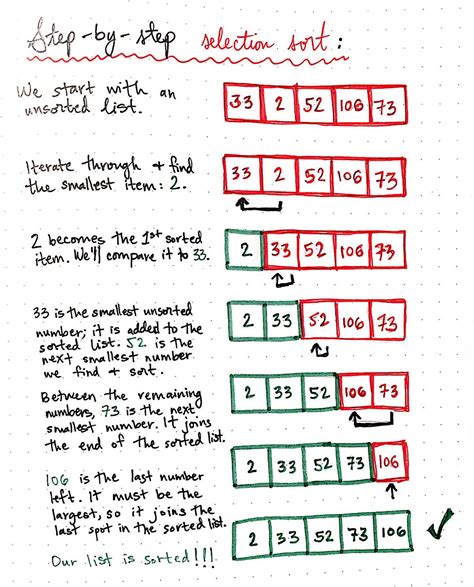 Step-by-step selection sort:
We start with an
unsorted list.
33 2 52 106 73
Iterate through & find
the smallest item: 2.
33 2 52 106 73
2 becomes the 1st sorted
item. We'll compare it to 33.
2 33 52 106 73
33 is the smallest unsorted
number; it is added to the
sorted list. 52 is the
next smallest number
we find & sort.
2 33 52 106 73
Between the remaining
numbers, 73 is the next
smallest number. It joins
the end of the sorted list.
2 33 52 106 73
106 is the last number
left. It must be the
largest, so it joins the
last spot in the sorted list.
2 33 52 73 106
Our list is sorted!!!
2 33 52 73 106